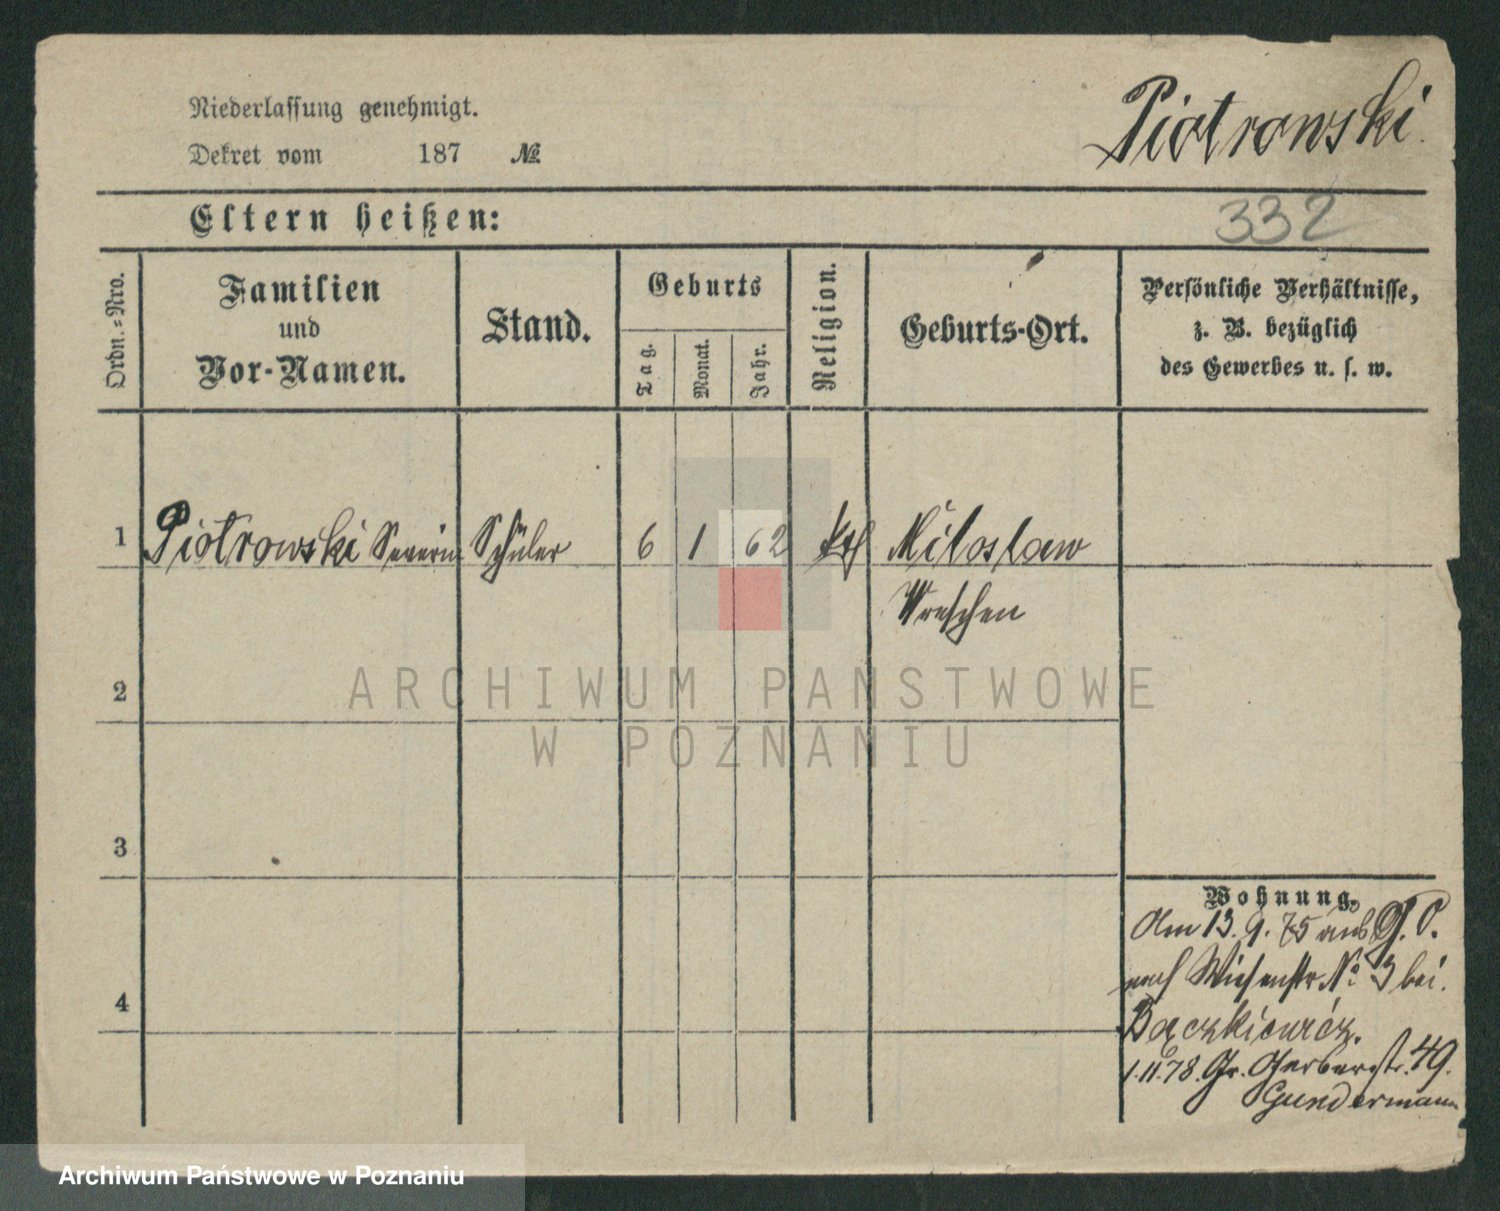 Niederlassung genehmigt.
Piotrowski
Dekret vom 187 №
Eltern heißen:
332
Ordn.-Nro.
Familien
und
Vor-Namen.
Stand.
Geburts
Tag.
Monat.
Jahr.
Religion.
Geburts-Ort.
Persönliche Verhältnisse,
z. B. bezüglich
des Gewerbes u. s. w.
1 Piotrowski Severin Schüler 6 1 62 kth Miloslaw
Wreschen
2
ARCHIWUM PAŃSTWOWE
W POZNANIU
3
Wohnung.
Am 13. 9. 75 aus G. P.
nach Wiesenstr. No 3 bei
4
Bączkiewicz.
1.11.78. Gr. Gerberstr. 49.
Gundermann
Archiwum Państwowe w Poznaniu